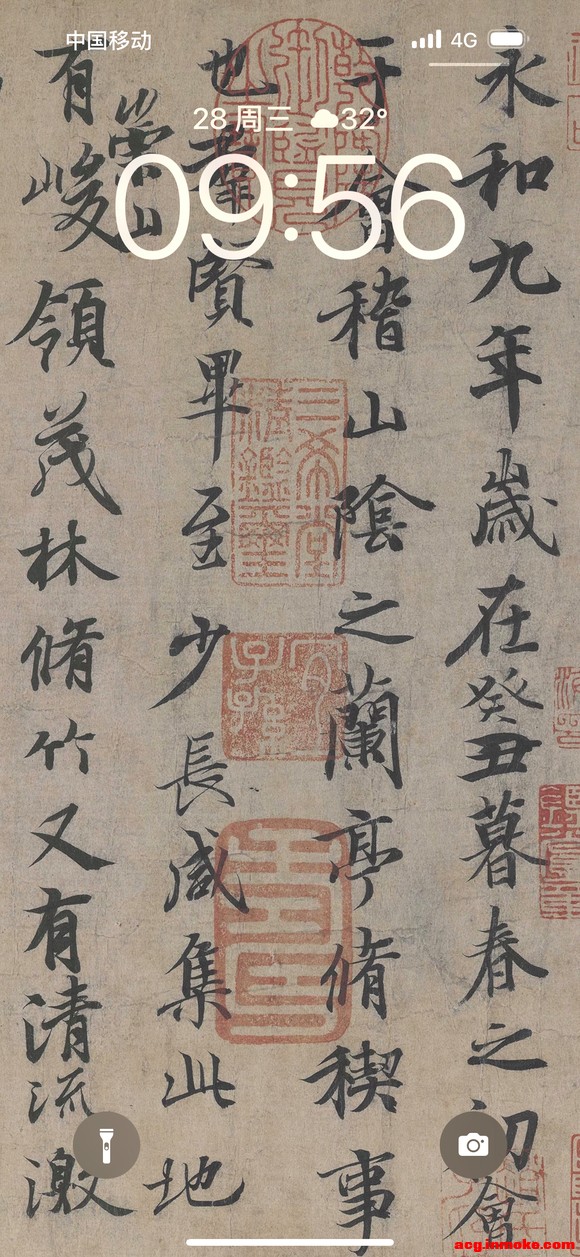 中国移动 4G
28 周三 32°
09:56
永和九年歲在癸丑暮春之初會
于會稽山陰之蘭亭脩稧事
也羣賢畢至少長咸集此地
有崇山峻領茂林脩竹又有清流激
三希堂精鑑璽
宜子孫
acg.inmoke.com